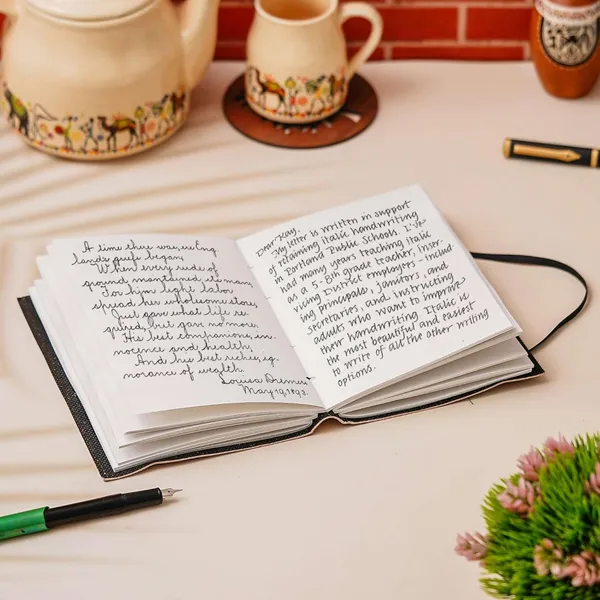 A time there was, ere Eng
lands griefs began,
When every rude of
ground maintained its man,
For him light labor
spread her wholesome store,
Just gave what life re
quired, but gave no more.
His best companions, in
nocence and health,
And his best riches, ig
norance of wealth.
Louisa
May 19, 1893.
Dear Kay,
My letter is written in support
of retaining italic handwriting
in Portland Public Schools. I've
had many years teaching italic
as a 5-8th grade teacher, inser-
vicing district employers - includ-
ing principals, janitors, and
secretaries, and instructing
adults who want to improve
their handwriting. Italic is
the most beautiful and easiest
to write of all the other writing
options.